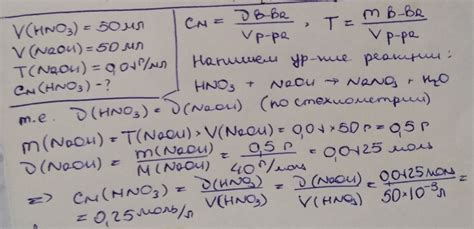 V(HNO₃) = 50 мл
V(NaOH) = 50 мл
T(NaOH) = 0,01 г/мл
Cм(HNO₃) - ?
Cм = ν в-ва / V р-ра , T = m в-ва / V р-ра
Напишем ур-ние реакции :
HNO₃ + NaOH → NaNO₃ + H₂O
т.е. ν(HNO₃) = ν(NaOH) (по стехиометрии)
m(NaOH) = T(NaOH) × V(NaOH) = 0,01 · 50 г = 0,5 г
ν(NaOH) = m(NaOH) / M(NaOH) = 0,5 г / 40 г/моль = 0,0125 моль
=> Cм(HNO₃) = ν(HNO₃) / V(HNO₃) = ν(NaOH) / V(HNO₃) = 0,0125 моль / 50·10⁻³ л =
= 0,25 моль/л